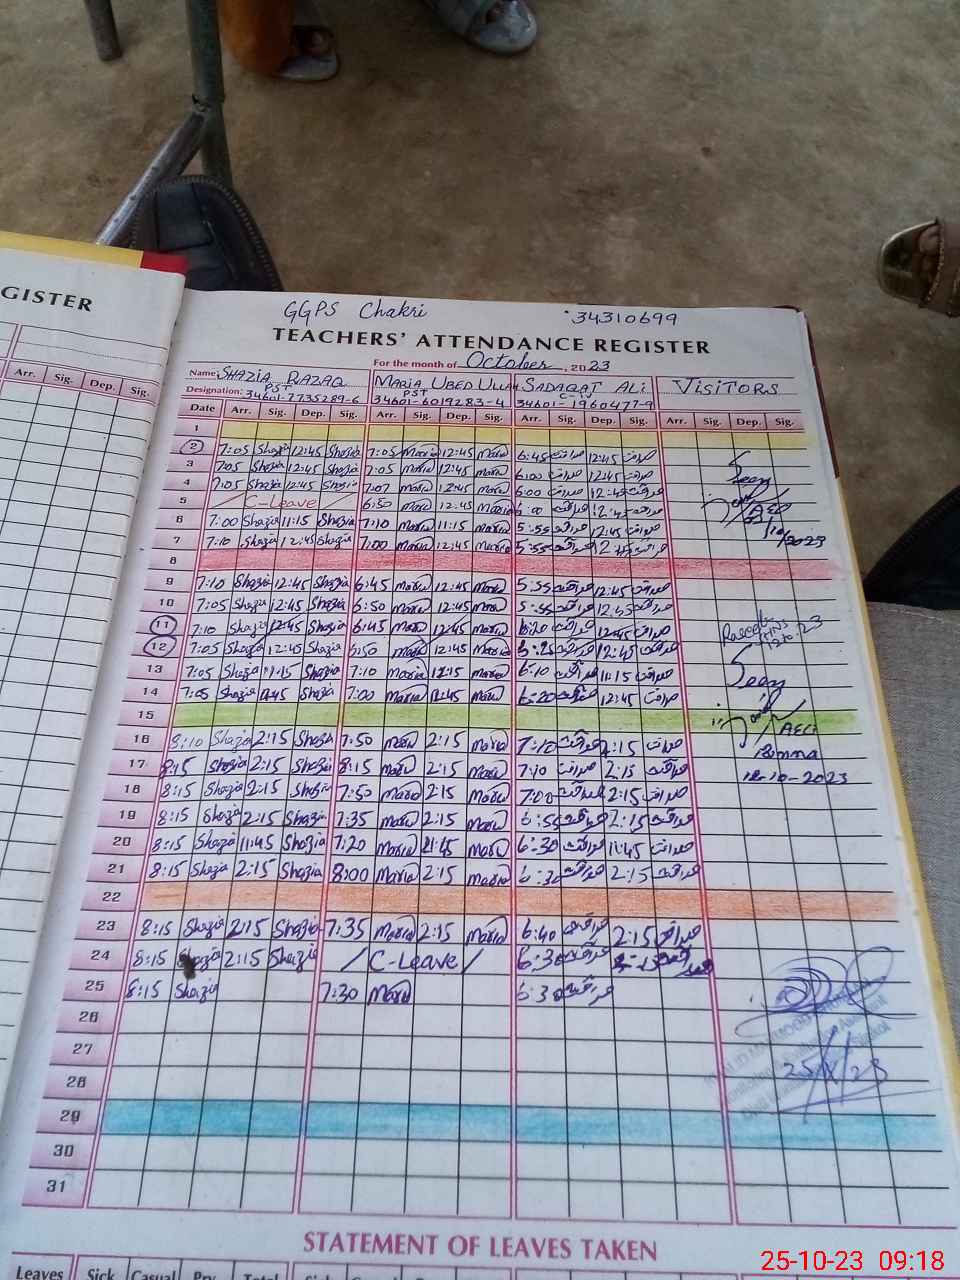 GISTER
Arr. Sig. Dep. Sig.
GGPS Chakri 34310699
TEACHERS' ATTENDANCE REGISTER
For the month of October, 2023
Name SHAZIA RAZAQ MARIA UBED ULLAH SADAQAT ALI VISITORS
Designation: PST PST C-IV
34601-7735289-6 34601-6019283-4 34601-1960477-9
Date Arr. Sig. Dep. Sig. Arr. Sig. Dep. Sig. Arr. Sig. Dep. Sig. Arr. Sig. Dep. Sig.
1
2 7:05 Shazia 12:45 Shazia 7:05 Maria 12:45 Maria 6:45 صداقت 12:45 صداقت
3 7:05 Shazia 12:45 Shazia 7:05 Maria 12:45 Maria 6:00 صداقت 12:45 صداقت Seen
4 7:05 Shazia 12:45 Shazia 7:07 Maria 12:45 Maria 6:00 صداقت 12:45 صداقت
5 / C-Leave / 6:50 Maria 12:45 Maria صداقت 12:45 صداقت AEO
6 7:00 Shazia 11:15 Shazia 7:10 Maria 11:15 Maria 5:55 صداقت 12:45 صداقت
7 7:10 Shazia 12:45 Shazia 7:00 Maria 12:45 Maria 5:55 صداقت 12:45 صداقت
8
9 7:10 Shazia 12:45 Shazia 6:45 Maria 12:45 Maria 5:55 صداقت 12:45 صداقت
10 7:05 Shazia 12:45 Shazia 6:50 Maria 12:45 Maria 5:55 صداقت 12:45 صداقت
11 7:10 Shazia 12:45 Shazia 6:45 Maria 12:45 Maria 6:20 صداقت 12:45 صداقت
12 7:05 Shazia 12:45 Shazia 6:50 Maria 12:45 Maria صداقت 12:45 صداقت
13 7:05 Shazia 11:15 Shazia 7:10 Maria Maria 6:10 صداقت 11:15 صداقت Seen
14 7:05 Shazia Shazia 7:00 Maria Maria 6:20 صداقت 12:45 صداقت
15 AEO
16 8:10 Shazia 2:15 Shazia 7:50 Maria 2:15 Maria 7:10 صداقت 2:15 صداقت
17 8:15 Shazia 2:15 Shazia 8:15 Maria 2:15 Maria 7:10 صداقت 2:15 صداقت 12-10-2023
18 8:15 Shazia 2:15 Shazia 7:50 Maria 2:15 Maria 7:00 صداقت 2:15 صداقت
19 8:15 Shazia 2:15 Shazia 7:35 Maria 2:15 Maria 6:55 صداقت 2:15 صداقت
20 8:15 Shazia 11:45 Shazia 7:20 Maria 11:45 Maria 6:30 صداقت 11:45 صداقت
21 8:15 Shazia 2:15 Shazia 8:00 Maria 2:15 Maria 6:30 صداقت 2:15 صداقت
22
23 8:15 Shazia 2:15 Shazia 7:35 Maria 2:15 Maria 6:40 صداقت 2:15 صداقت
24 8:15 Shazia 2:15 Shazia / C-Leave / 6:30 صداقت 2:15 صداقت
25 8:15 Shazia 7:30 Maria 6:30 صداقت
26
27
28 25/X/23
29
30
31
STATEMENT OF LEAVES TAKEN
Leaves Sick Casual Prv. Total
25-10-23 09:18